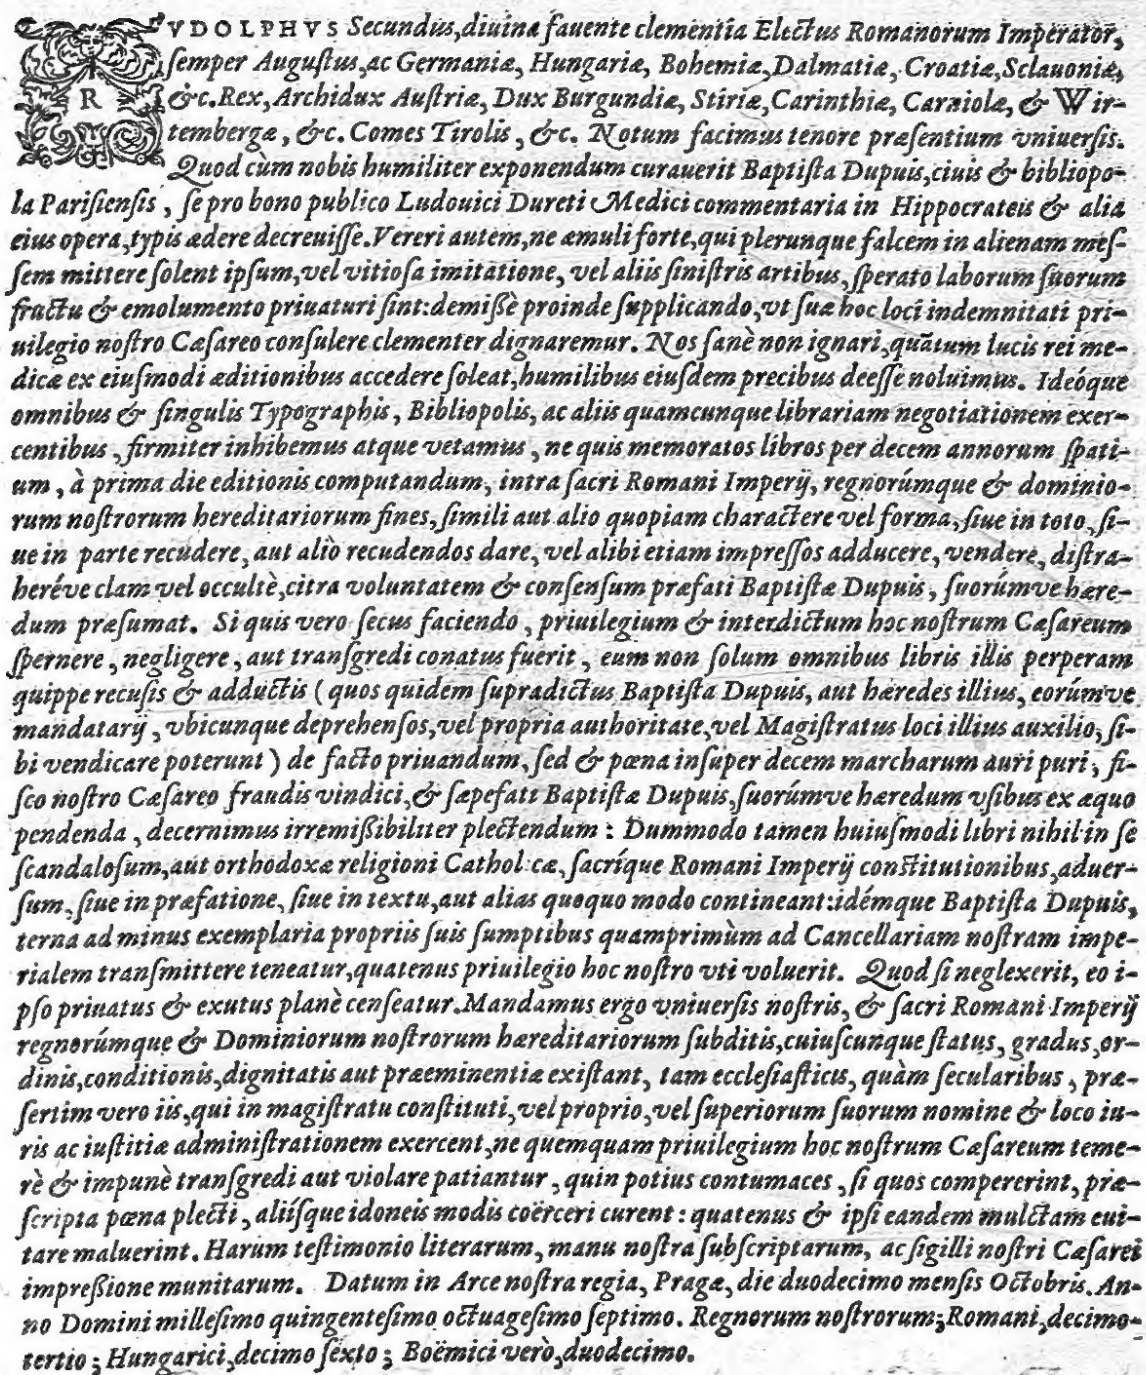 RVDOLPHVS Secundus, diuina fauente clementia Electus Romanorum Imperator,
semper Augustus, ac Germaniæ, Hungariæ, Bohemiæ, Dalmatiæ, Croatiæ, Sclauoniæ,
&c. Rex, Archidux Austriæ, Dux Burgundiæ, Stiriæ, Carinthiæ, Carniolæ, & Wir-
tembergæ, &c. Comes Tirolis, &c. Notum facimus tenore præsentium vniuersis.
Quod cùm nobis humiliter exponendum curauerit Baptista Dupuis, ciuis & bibliopo-
la Parisiensis, se pro bono publico Ludouici Dureti Medici commentaria in Hippocrateis & alia
eius opera, typis ædere decreuisse. Vereri autem, ne æmuli forte, qui plerunque falcem in alienam mes-
sem mittere solent ipsum, vel vitiosa imitatione, vel aliis sinistris artibus, sperato laborum suorum
fructu & emolumento priuaturi sint: demissè proinde supplicando, vt suæ hoc loci indemnitati pri-
uilegio nostro Cæsareo consulere clementer dignaremur. Nos sanè non ignari, quãtum lucis rei me-
dicæ ex eiusmodi æditionibus accedere soleat, humilibus eiusdem precibus deesse noluimus. Ideóque
omnibus & singulis Typographis, Bibliopolis, ac aliis quamcunque librariam negotiationem exer-
centibus, firmiter inhibemus atque vetamus, ne quis memoratos libros per decem annorum spati-
um, à prima die editionis computandum, intra sacri Romani Imperij, regnorúmque & dominio-
rum nostrorum hereditariorum fines, simili aut alio quopiam charactere vel forma, siue in toto, si-
ue in parte recudere, aut alio recudendos dare, vel alibi etiam impressos adducere, vendere, distra-
heréve clam vel occultè, citra voluntatem & consensum præfati Baptistæ Dupuis, suorúmve hære-
dum præsumat. Si quis vero secus faciendo, priuilegium & interdictum hoc nostrum Cæsareum
spernere, negligere, aut transgredi conatus fuerit, eum non solum omnibus libris illis perperam
quippe recusis & adductis (quos quidem supradictus Baptista Dupuis, aut hæredes illius, eorúmve
mandatarij, vbicunque deprehensos, vel propria authoritate, vel Magistratus loci illius auxilio, si-
bi vendicare poterunt) de facto priuandum, sed & pœna insuper decem marcharum auri puri, fi-
sco nostro Cæsareo fraudis vindici, & sæpefati Baptistæ Dupuis, suorúmve hæredum vsibus ex æquo
pendenda, decernimus irremissibiliter plectendum: Dummodo tamen huiusmodi libri nihil in se
scandalosum, aut orthodoxæ religioni Cathol cæ, sacríque Romani Imperij constitutionibus, aduer-
sum, siue in præfatione, siue in textu, aut alias quoquo modo contineant: idémque Baptista Dupuis,
terna ad minus exemplaria propriis suis sumptibus quamprimùm ad Cancellariam nostram impe-
rialem transmittere teneatur, quatenus priuilegio hoc nostro vti voluerit. Quod si neglexerit, eo i-
pso priuatus & exutus planè censeatur. Mandamus ergo vniuersis nostris, & sacri Romani Imperij
regnorúmque & Dominiorum nostrorum hæreditariorum subditis, cuiuscunque status, gradus, or-
dinis, conditionis, dignitatis aut præeminentiæ existant, tam ecclesiasticis, quàm secularibus, præ-
sertim vero iis, qui in magistratu constituti, vel proprio, vel superiorum suorum nomine & loco iu-
ris ac iustitiæ administrationem exercent, ne quemquam priuilegium hoc nostrum Cæsareum teme-
rè & impunè transgredi aut violare patiantur, quin potius contumaces, si quos compererint, præ-
scripta pœna plecti, aliísque idoneis modis coërceri curent: quatenus & ipsi eandem mulctam eui-
tare maluerint. Harum testimonio literarum, manu nostra subscriptarum, ac sigilli nostri Cæsarei
impressione munitarum. Datum in Arce nostra regia, Pragæ, die duodecimo mensis Octobris. An-
no Domini millesimo quingentesimo octuagesimo septimo. Regnorum nostrorum; Romani, decimo-
tertio; Hungarici, decimo sexto; Boëmici verò, duodecimo.